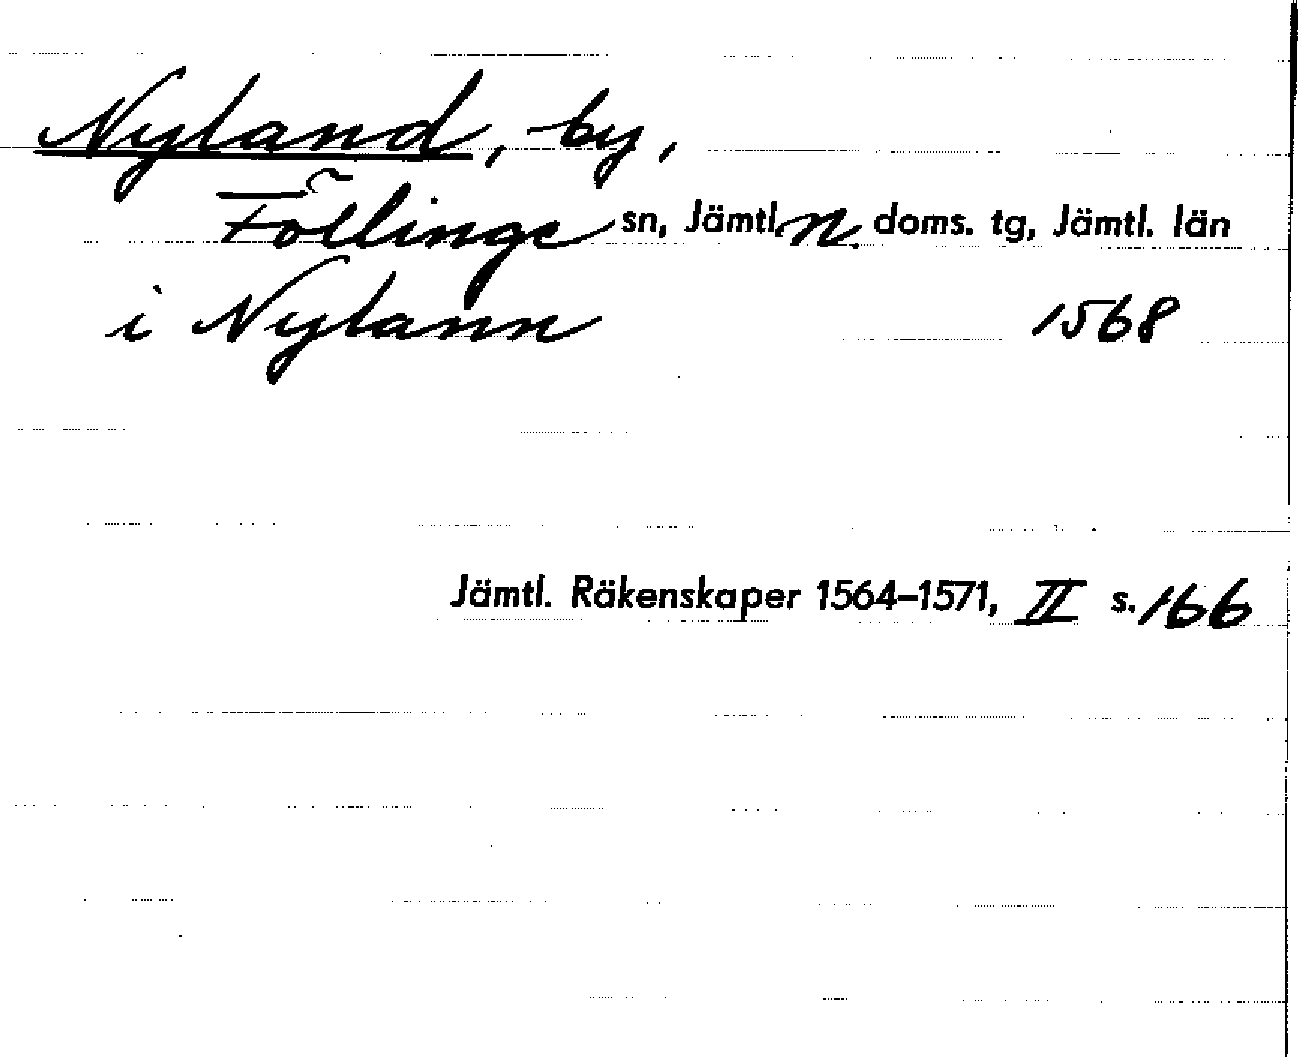 Nyland, by,
Föllinge sn, Jämtl. n. doms. tg, Jämtl. län
i Nylann 1568
Jämtl. Räkenskaper 1564–1571, II s. 166